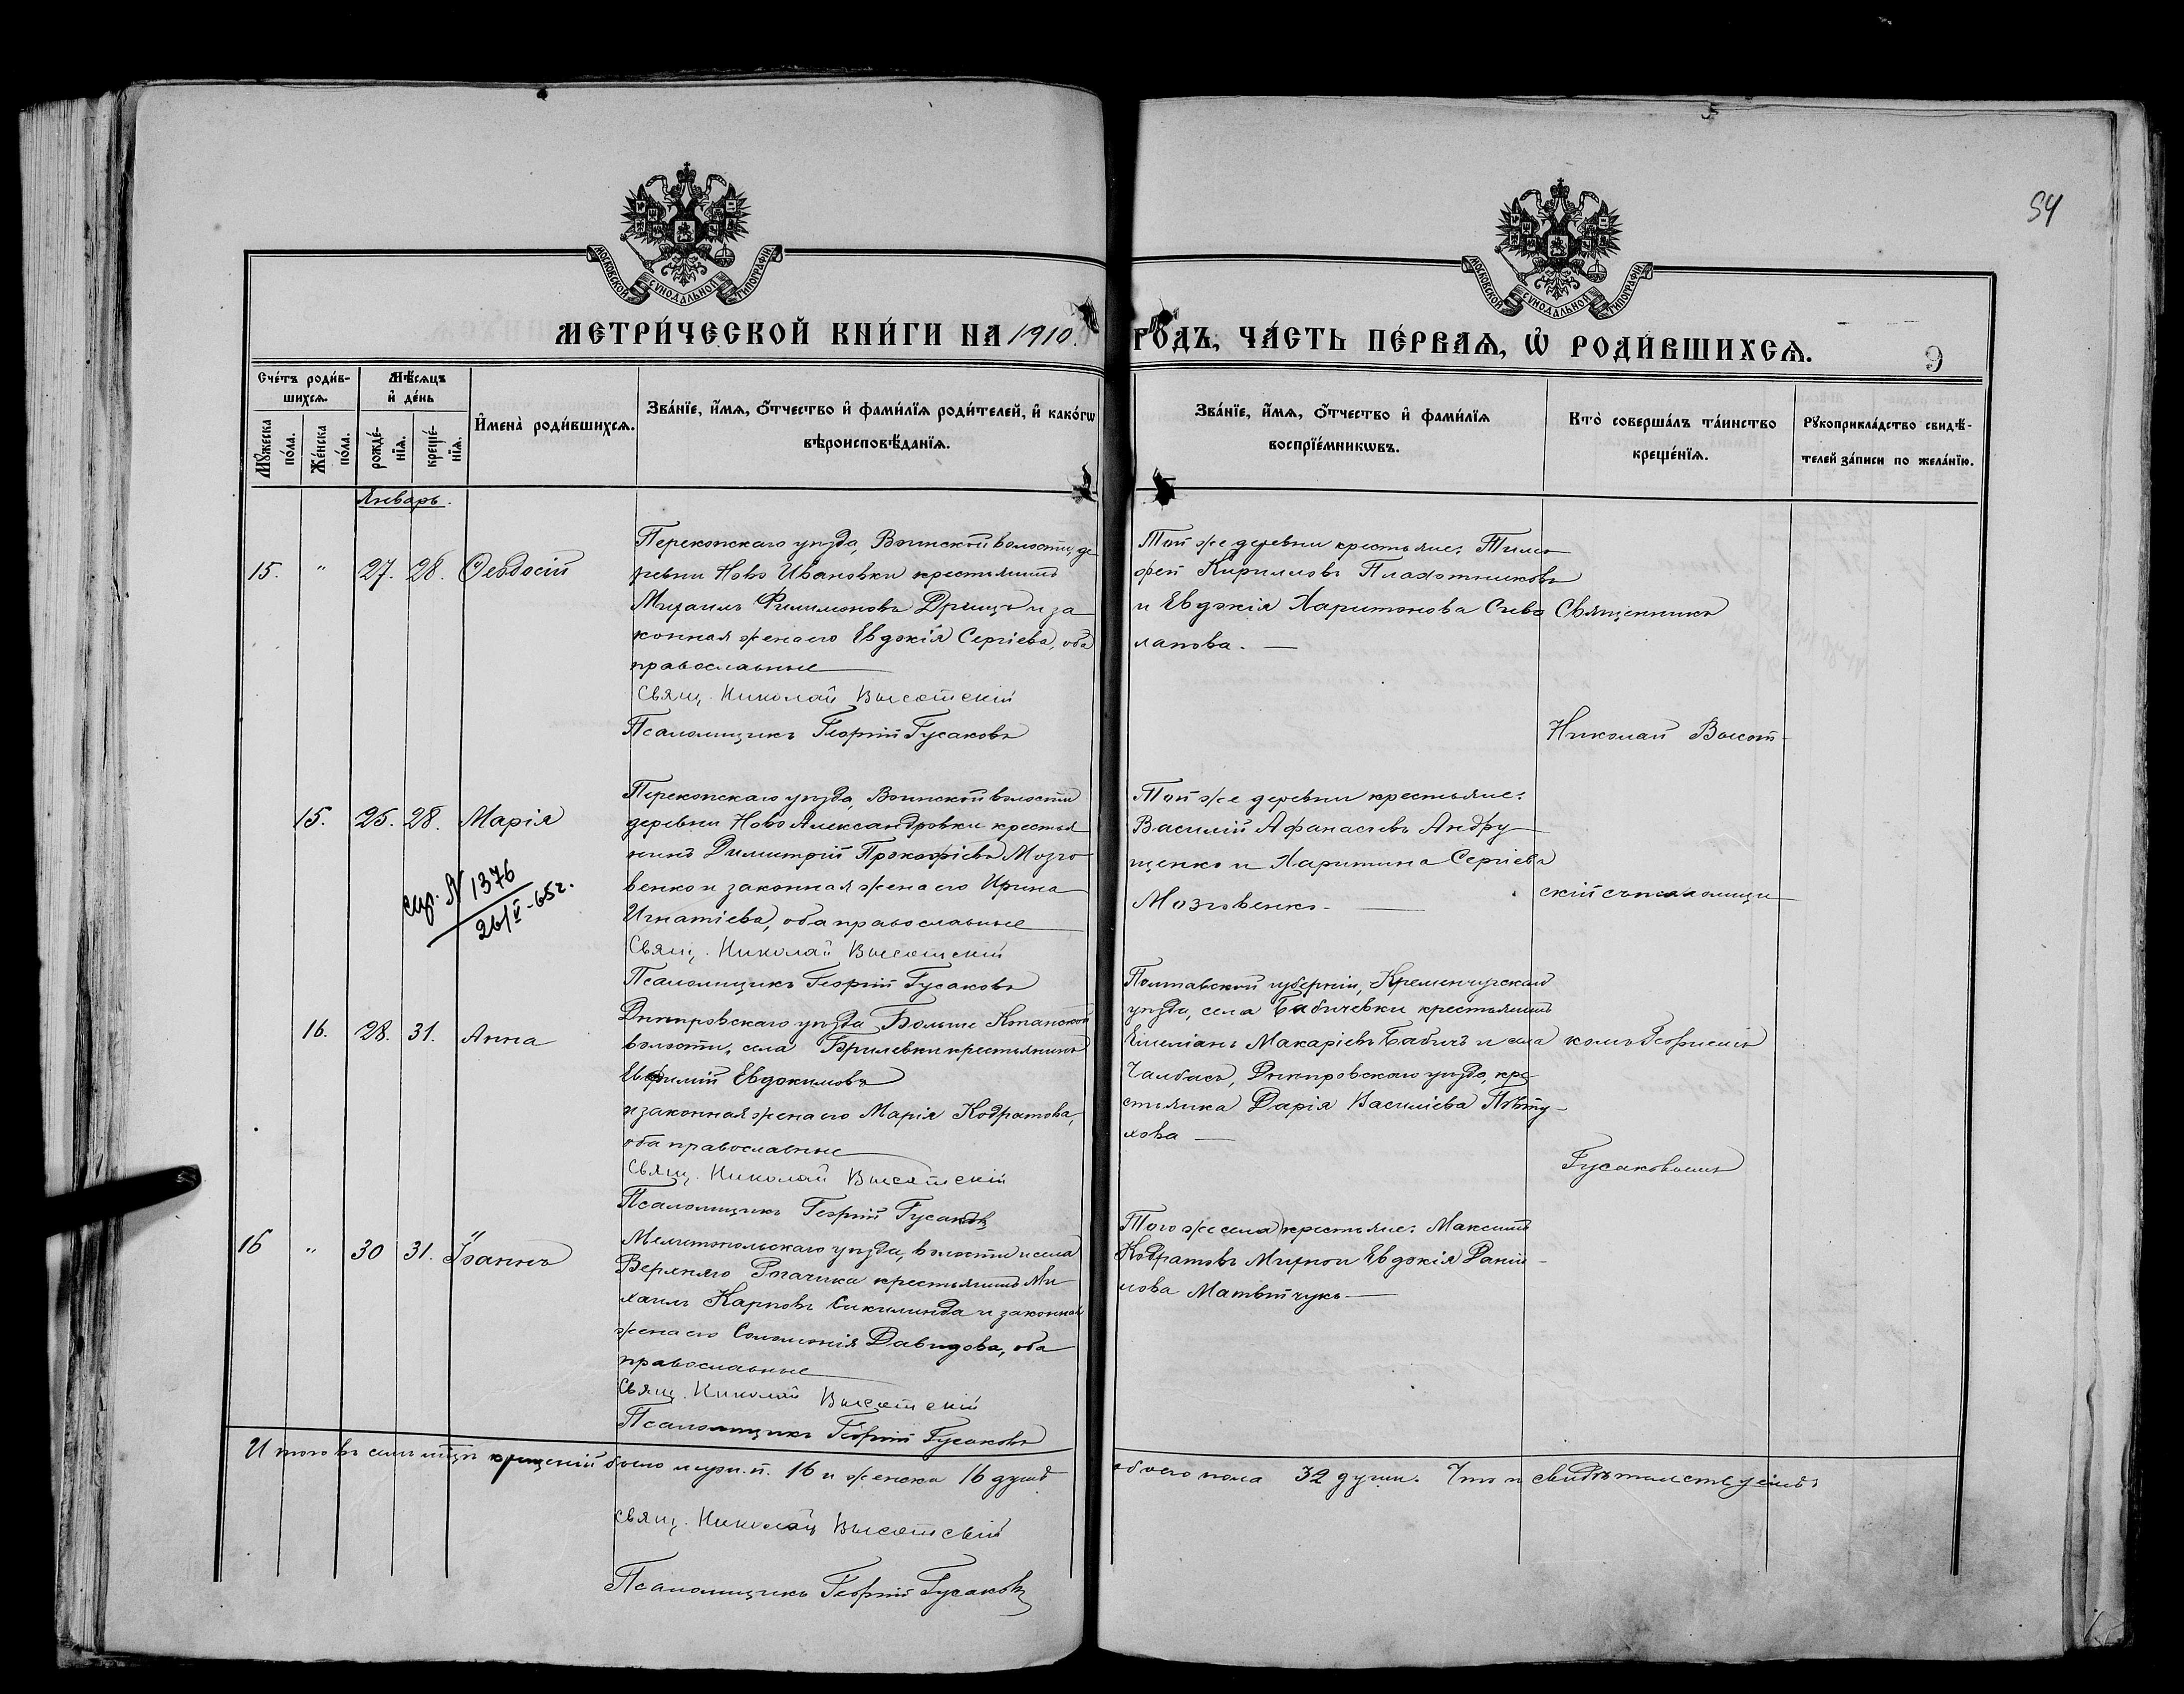 94
МОСКОВСКОЙ СУНОДАЛЬНОЙ ТИПОГРАФІИ
МОСКОВСКОЙ СУНОДАЛЬНОЙ ТИПОГРАФІИ
МЕТРИ́ЧЕСКОЙ КНИ́ГИ НА 1910.
ГО́ДЪ, ЧА́СТЬ ПЕ́РВАѦ, Ѡ҆ РОДИ́ВШИХСѦ.
9
Сче́тъ роди́вшихсѧ.
Му́жеска по́ла.
Же́нска по́ла.
Мѣ́сѧцъ и҆ де́нь
рожде́нїѧ.
креще́нїѧ.
И҆мена̀ роди́вшихсѧ.
Зва́нїе, и҆́мѧ, ѻ҆́тчество и҆ фами́лїѧ роди́телей, и҆ како́гѡ
вѣроисповѣ́данїѧ.
Зва́нїе, и҆́мѧ, ѻ҆́тчество и҆ фами́лїѧ
воспрїе́мникѡвъ.
Кто̀ соверша́лъ та́инство
креще́нїѧ.
Рꙋкоприкла́дство свидѣ́-
телей за́писи по жела́нїю.
Январь.
15. " 27. 28. Ѳеодосій
Перекопскаго уѣзда, Воинской волости, де
ревни Ново Ивановки крестьянинъ
Михаилъ Филимоновъ Дрищъ и за
конная жена его Евдокія Сергіева, оба
православные
Свящ. Николай Высотскій
Псаломщикъ Георгій Гусаковъ
Той же деревни крестьяне: Тимо
фей Кирилловъ Плахотниковъ
и Евдокія Харитонова Сиво
лапова.
Священникъ
Николай Высот-
15. 25. 28. Марія
Перекопскаго уѣзда, Воинской волости
деревни Ново Александровки крестья
нинъ Димитрій Прокофіевъ Мозго
венко и законная жена его Ирина
Игнатіева, оба православные
Свящ. Николай Высотскій
Псаломщикъ Георгій Гусаковъ
спр. N 1376
26/V-65г.
Той же деревни крестьяне:
Василій Афанасіевъ Андру
щенко и Харитина Сергіева
Мозговенко.
скій съ псаломщи
16. 28. 31. Анна
Днѣпровскаго уѣзда Больше Копанской
волости, села Брилевки крестьянинъ
Евфимій Евдокимовъ
и законная жена его Марія Кодратова,
оба православные
Свящ. Николай Высотскій
Псаломщикъ Георгій Гусаковъ
Полтавской губерніи, Кременчугскаго
уѣзда, села Бабичевки крестьянинъ
Емеліанъ Макаріевъ Бабичъ и села
Чалбасъ, Днѣпровскаго уѣзда, кре
стьянка Дарія Василіева Пѣту-
хова
комъ Георгіемъ
Гусаковымъ
16 " 30 31. Іоаннъ
Мелитопольскаго уѣзда, волости и села
Верхняго Рогачика крестьянинъ Ми-
хаилъ Карповъ Сикилинда и законная
жена его Соломонія Давидова, оба
православные
Свящ. Николай Высотскій
Псаломщикъ Георгій Гусаковъ
Того же села крестьяне: Максимъ
Кодратовъ Мирной Евдокія Даніи-
лова Матвѣйчукъ
Итого въ семъ мѣсяцѣ крещеній было муж. п. 16 и женска 16 душъ
обоего пола 32 души. Что и свидѣтельствуемъ:
Свящ. Николай Высотскій
Псаломщикъ Георгій Гусаковъ